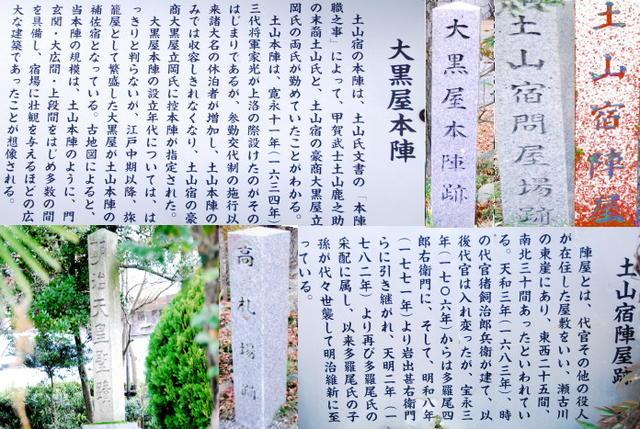 大黒屋本陣
土山宿の本陣は、土山氏文書の「本陣
職之事」によって、甲賀武士土山鹿之助
の末裔土山氏と、土山宿の豪商大黒屋立
岡氏の両氏が勤めていたことがわかる。
土山本陣は、寛永十一年(一六三四年)
三代将軍家光が上洛の際設けたのがその
はじまりであるが、参勤交代制の施行以
来諸大名の休泊者が増加し、土山本陣の
みでは収容しきれなくなり、土山宿の豪
商大黒屋立岡氏に控本陣が指定された。
大黒屋本陣の設立年代については、は
っきりと判らないが、江戸中期以降、旅
籠屋として繁盛した大黒屋が土山本陣の
補佐宿となっている。古地図によると、
当本陣の規模は、土山本陣のように、門
玄関・大広間・上段間をはじめ多数の間
を具備し、宿場に壮観を与えるほどの広
大な建築であったことが想像される。
大黒屋本陣跡
土山宿問屋場跡
土山宿陣屋
明治天皇聖蹟
高札場跡
土山宿陣屋跡
陣屋とは、代官その他の役人
が在住した屋敷をいい、瀬古川
の東崖にあり、東西二十五間、
南北三十間あったといわれてい
る。天和三年(一六八三年)、時
の代官猪飼治郎兵衛が建て、以
後代官は入れ変ったが、宝永三
年(一七〇六年)からは多羅尾四
郎右衛門に、そして、明和八年
(一七七一年)より岩出甚右衛門
らに引き継がれ、天明二年(一
七八二年)より再び多羅尾氏の
采配に属し、以来多羅尾氏の子
孫が代々世襲して明治維新に至
っている。